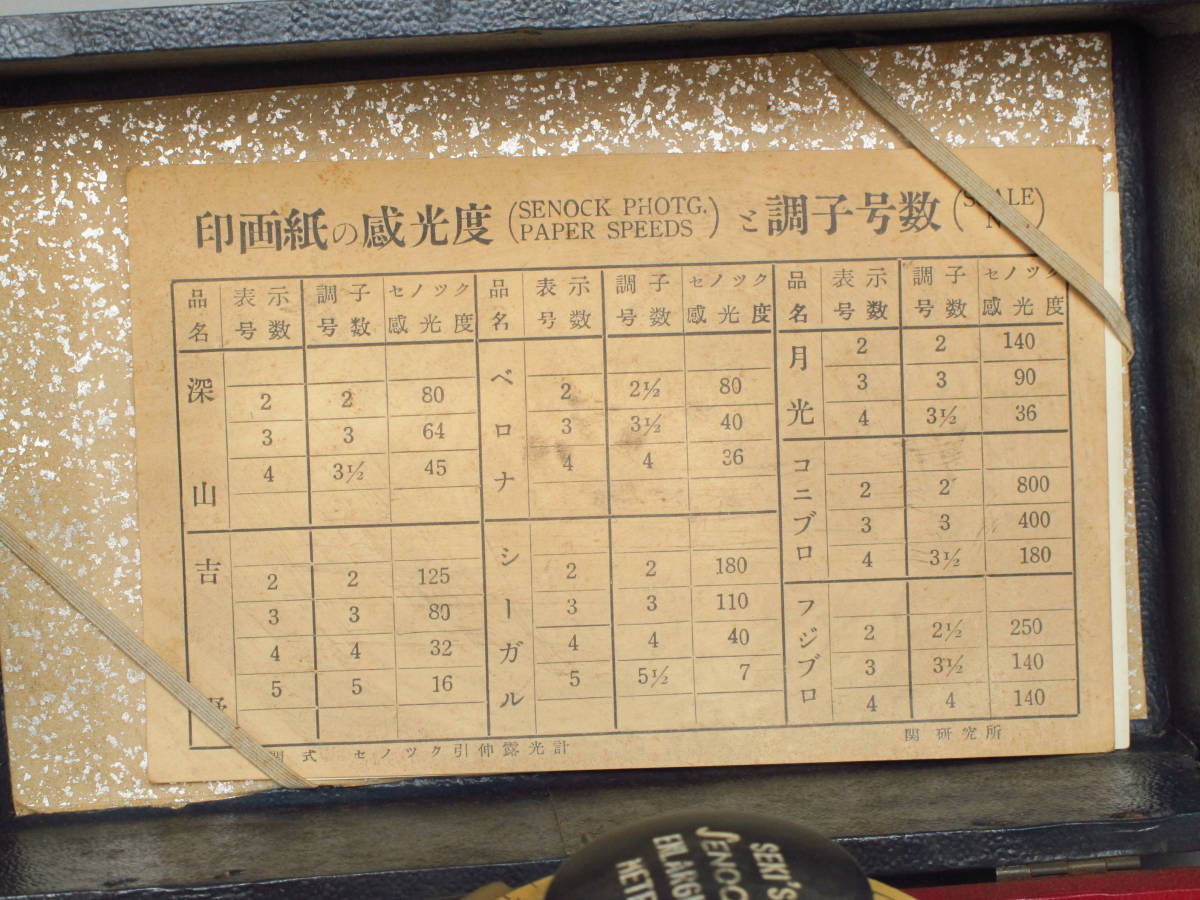 印画紙の感光度 (SENOCK PHOTG. PAPER SPEEDS) と調子号数 (
品名 表示号数 調子号数 セノツク感光度
深山
2 2 80
3 3 64
4 3½ 45
吉
2 2 125
3 3 80
4 4 32
5 5 16
品名 表示号数 調子号数 セノツク感光度
ベロナ
2 2½ 80
3 3½ 40
4 4 36
シーガル
2 2 180
3 3 110
4 4 40
5 5½ 7
品名 表示号数 調子号数 セノツク感光度
月光
2 2 140
3 3 90
4 3½ 36
コニブロ
2 2 800
3 3 400
4 3½ 180
フジブロ
2 2½ 250
3 3½ 140
4 4 140
式 セノツク引伸露光計
関研究所
SEKI'S
SENOC
ENLARG
METE